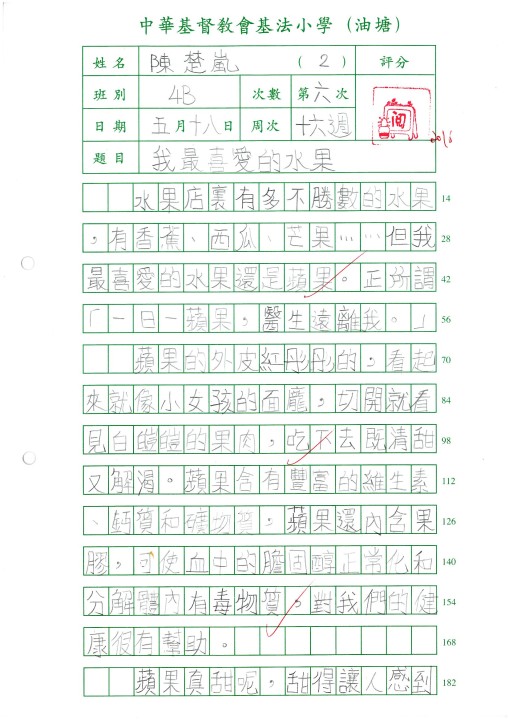 中華基督教會基法小學（油塘）
姓名 陳楚嵐 （2） 評分
班別 4B 次數 第六次
日期 五月十八日 周次 十六週
題目 我最喜愛的水果
水果店裏有多不勝數的水果 14
，有香蕉、西瓜、芒果……但我 28
最喜愛的水果還是蘋果。正所謂 42
「一日一蘋果，醫生遠離我。」 56
蘋果的外皮紅彤彤的，看起 70
來就像小女孩的面龐，切開就看 84
見白皚皚的果肉，吃下去既清甜 98
又解渴。蘋果含有豐富的維生素 112
、鈣質和礦物質，蘋果還內含果 126
膠，可使血中的膽固醇正常化和 140
分解體內有毒物質，對我們的健 154
康很有幫助。 168
蘋果真甜呢，甜得讓人感到 182